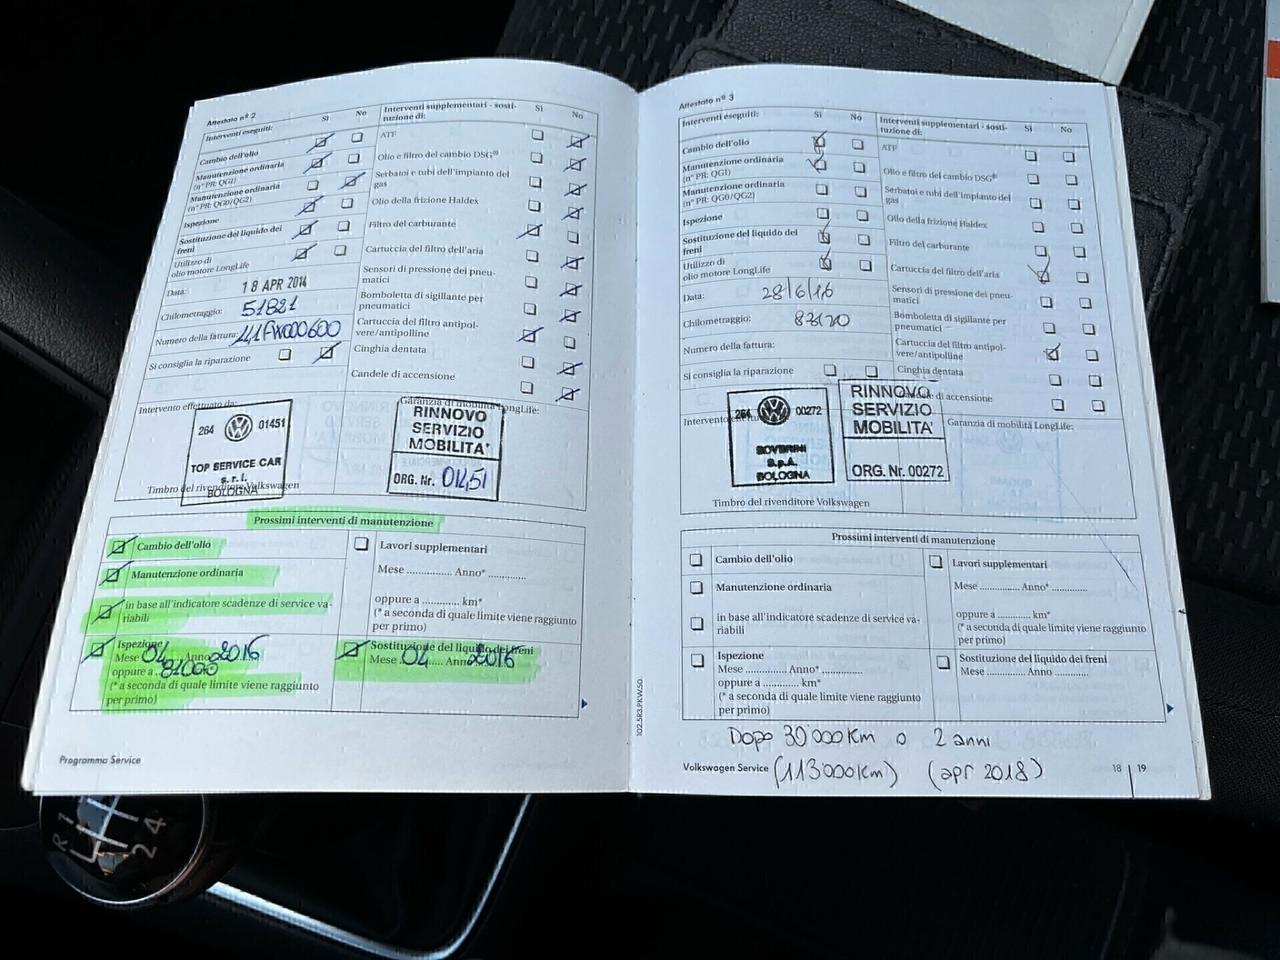 Attestato nº 2
Interventi eseguiti:
Sì
No
Cambio dell'olio
Manutenzione ordinaria
(nº PR: QG1)
Manutenzione ordinaria
(nº PR: QG0/QG2)
Ispezione
Sostituzione del liquido dei
freni
Utilizzo di
olio motore LongLife
Data:
18 APR 2014
Chilometraggio:
51821
Numero della fattura:
Si consiglia la riparazione
Interventi supplementari - sosti-
tuzione di:
Sì
No
ATF
Olio e filtro del cambio DSG®
Serbatoi e tubi dell'impianto del
gas
Olio della frizione Haldex
Filtro del carburante
Cartuccia del filtro dell'aria
Sensori di pressione dei pneu-
matici
Bomboletta di sigillante per
pneumatici
Cartuccia del filtro antipol-
vere/antipolline
Cinghia dentata
Candele di accensione
Intervento effettuato da:
264 01451
TOP SERVICE CAR
s.r.l.
BOLOGNA
Timbro del rivenditore Volkswagen
Garanzia di mobilità LongLife:
RINNOVO
SERVIZIO
MOBILITA'
ORG. Nr. 01451
Prossimi interventi di manutenzione
Cambio dell'olio
Manutenzione ordinaria
in base all'indicatore scadenze di service va-
riabili
Ispezione
Mese 04 Anno 2016
oppure a 81000
(* a seconda di quale limite viene raggiunto
per primo)
Lavori supplementari
Mese ............... Anno* .............
oppure a ............ km*
(* a seconda di quale limite viene raggiunto
per primo)
Sostituzione del liquido dei freni
Mese 04 Anno 2016
Programma Service
102.5R3.PKW.50
Attestato nº 3
Interventi eseguiti:
Sì
No
Cambio dell'olio
Manutenzione ordinaria
(nº PR: QG1)
Manutenzione ordinaria
(nº PR: QG0/QG2)
Ispezione
Sostituzione del liquido dei
freni
Utilizzo di
olio motore LongLife
Data:
28/6/16
Chilometraggio:
Numero della fattura:
Si consiglia la riparazione
Interventi supplementari - sosti-
tuzione di:
Sì
No
ATF
Olio e filtro del cambio DSG®
Serbatoi e tubi dell'impianto del
gas
Olio della frizione Haldex
Filtro del carburante
Cartuccia del filtro dell'aria
Sensori di pressione dei pneu-
matici
Bomboletta di sigillante per
pneumatici
Cartuccia del filtro antipol-
vere/antipolline
Cinghia dentata
Candele di accensione
264 00272
S.p.A.
BOLOGNA
Timbro del rivenditore Volkswagen
RINNOVO
SERVIZIO
MOBILITA'
ORG. Nr. 00272
Garanzia di mobilità LongLife:
Prossimi interventi di manutenzione
Cambio dell'olio
Manutenzione ordinaria
in base all'indicatore scadenze di service va-
riabili
Ispezione
Mese ............... Anno* ...............
oppure a ............... km*
(* a seconda di quale limite viene raggiunto
per primo)
Lavori supplementari
Mese ............... Anno* .............
oppure a ............ km*
(* a seconda di quale limite viene raggiunto
per primo)
Sostituzione del liquido dei freni
Mese ............... Anno ...............
Dopo 30'000 Km o 2 anni
(113'000 km) (apr 2018)
Volkswagen Service
18 | 19
R 1
2 4